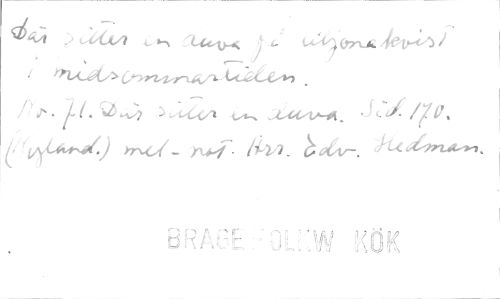 Där sitter en duva på liljonakvist
i midsommartiden.
No. 71. Där sitter en duva. Sid. 170.
(Nyland.) mel-not. Arr. Edv. Hedman.
BRAGE FOLKW KÖK